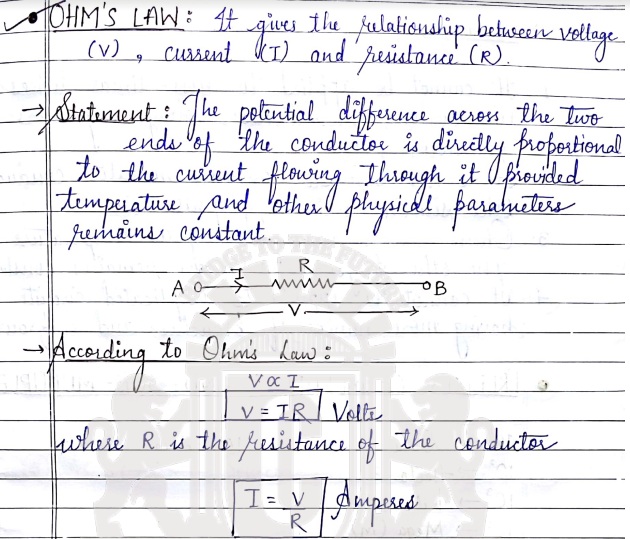 • OHM'S LAW : It gives the relationship between voltage
(V) , current (I) and resistance (R).
→ Statement : The potential difference across the two
ends of the conductor is directly proportional
to the current flowing through it provided
temperature and other physical parameters
remains constant.
I R
A B
V
→ According to Ohm's Law :
V ∝ I
V = IR Volts
where R is the resistance of the conductor
I = V/R Amperes